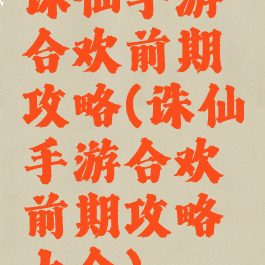 诛仙手游
合欢前期
攻略(诛仙
手游合欢
前期攻略
大全)